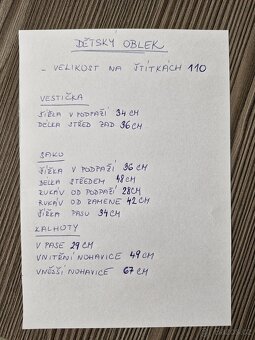 DĚTSKÝ OBLEK
- VELIKOST NA ŠTÍTKÁCH 110
VESTIČKA
ŠÍŘKA V PODPAŽÍ 34 CM
DÉLKA STŘED ZAD 36 CM
SAKO
ŠÍŘKA V PODPAŽÍ 36 CM
DÉLKA STŘEDEM 48 CM
RUKÁV OD PODPAŽÍ 28 CM
RUKÁV OD RAMENE 42 CM
ŠÍŘKA PASU 34 CM
KALHOTY
V PASE 29 CM
VNITŘNÍ NOHAVICE 49 CM
VNĚJŠÍ NOHAVICE 67 CM